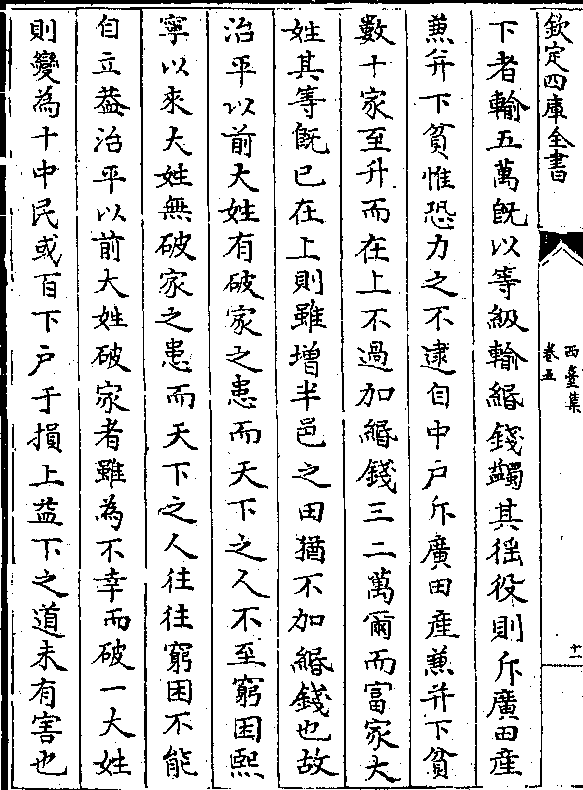 欽定四庫全書
西臺集
卷五
十一
下者輸五萬既以等級輸緡錢蠲其徭役則斥廣田産
兼并下貧惟恐力之不逮自中户斥廣田産兼并下貧
數十家至升而在上不過加緡錢三二萬爾而富家大
姓其等既已在上則雖增半邑之田猶不加緡錢也故
治平以前大姓有破家之患而天下之人不至窮困熙
寧以來大姓無破家之患而天下之人往往窮困不能
自立葢治平以前大姓破家者雖為不幸而破一大姓
則變為十中民或百下户于損上益下之道未有害也